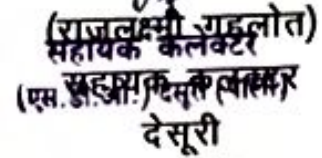 (राजलक्ष्मी गहलोत)
सहायक कलेक्टर
सहायक कलक्टर
(एम.डी.ओ.) देसूरी (पाली)
देसूरी